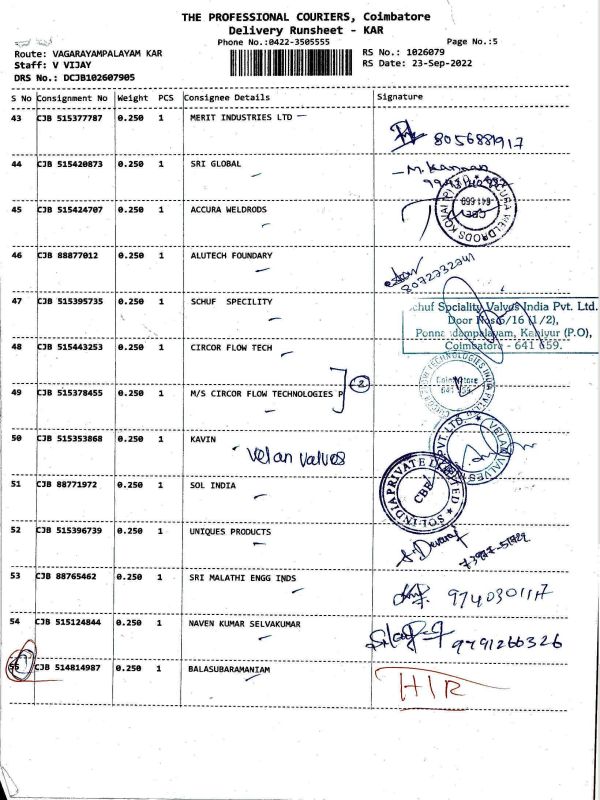 THE PROFESSIONAL COURIERS, Coimbatore
Delivery Runsheet - KAR
Phone No.:0422-3505555
Page No.:5
Route: VAGARAYAMPALAYAM KAR
RS No.: 1026079
Staff: V VIJAY
RS Date: 23-Sep-2022
DRS No.: DCJB102607905
S No Consignment No Weight PCS Consignee Details Signature
43 CJB 515377787 0.250 1 MERIT INDUSTRIES LTD
8056881917
44 CJB 515420873 0.250 1 SRI GLOBAL
M. Kannan
45 CJB 515424707 0.250 1 ACCURA WELDRODS
ACCURA WELDRODS KOVAI PVT LTD
CBE
641 659
46 CJB 88877012 0.250 1 ALUTECH FOUNDARY
8072232241
47 CJB 515395735 0.250 1 SCHUF SPECILITY
chuf Speciality Valves India Pvt. Ltd.
Door Nos 6/16 (1/2),
Ponnandampalayam, Kaniyur (P.O),
Coimbatore - 641 659.
48 CJB 515443253 0.250 1 CIRCOR FLOW TECH
Coimbatore
641 659.
49 CJB 515378455 0.250 1 M/S CIRCOR FLOW TECHNOLOGIES P
2
50 CJB 515353868 0.250 1 KAVIN
velan valves
VELAN VALVES
PVT LTD
51 CJB 88771972 0.250 1 SOL INDIA
SOL-INDIA PRIVATE LIMITED
CBE
52 CJB 515396739 0.250 1 UNIQUES PRODUCTS
S. Devaraj
53 CJB 88765462 0.250 1 SRI MALATHI ENGG INDS
9740301117
54 CJB 515124844 0.250 1 NAVEN KUMAR SELVAKUMAR
9791266326
55 CJB 514814987 0.250 1 BALASUBARAMANIAM
HIR